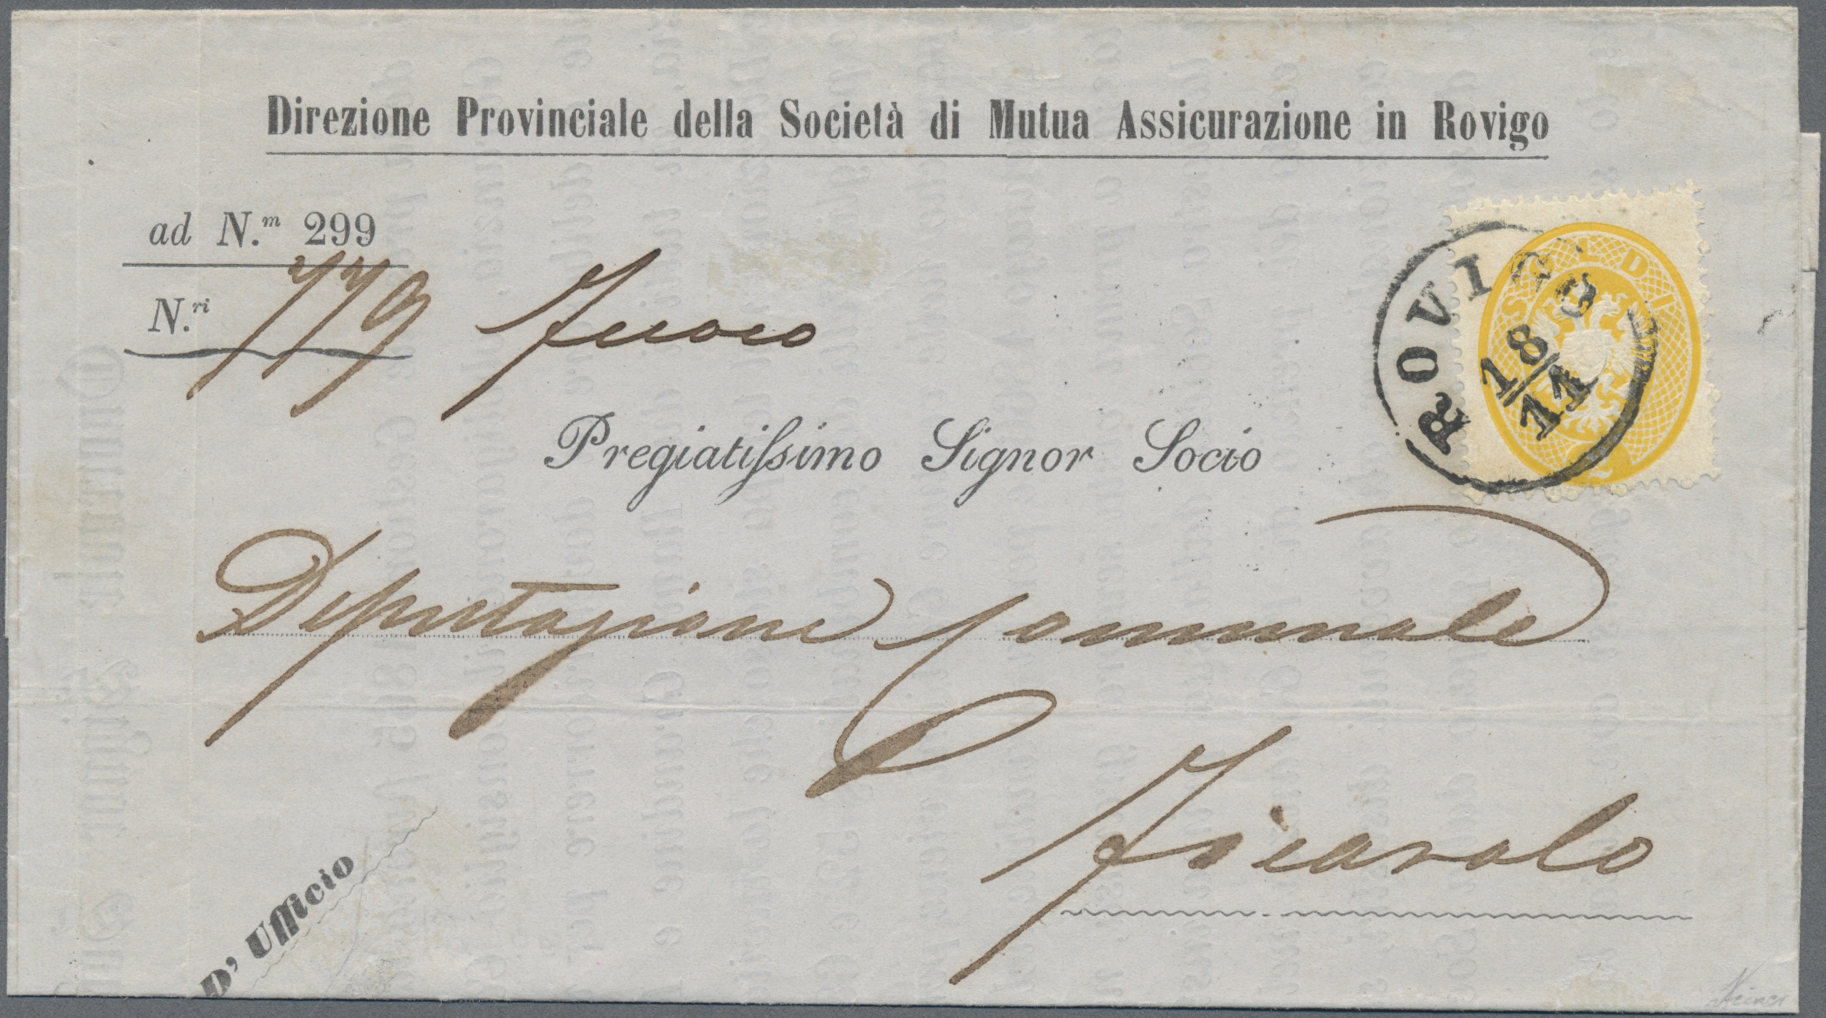 Direzione Provinciale della Società di Mutua Assicurazione in Rovigo
ad N.m 299
N.ri 779 Fuoco
ROVIGO
18/11
SOLDI
Pregiatissimo Signor Socio
Deputazione Comunale
Ficarolo
D' Ufficio